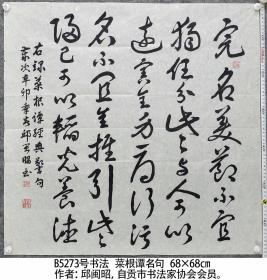 完名美節不宜
獨任分些與人可以
遠害全身辱行污
名不宜全推引些
歸己可以韜光養德
右録菜根譚經典警句
歲次辛卯春邱閩昭书
B5273号书法 菜根谭名句 68×68cm
作者: 邱闽昭, 自贡市书法家协会会员。